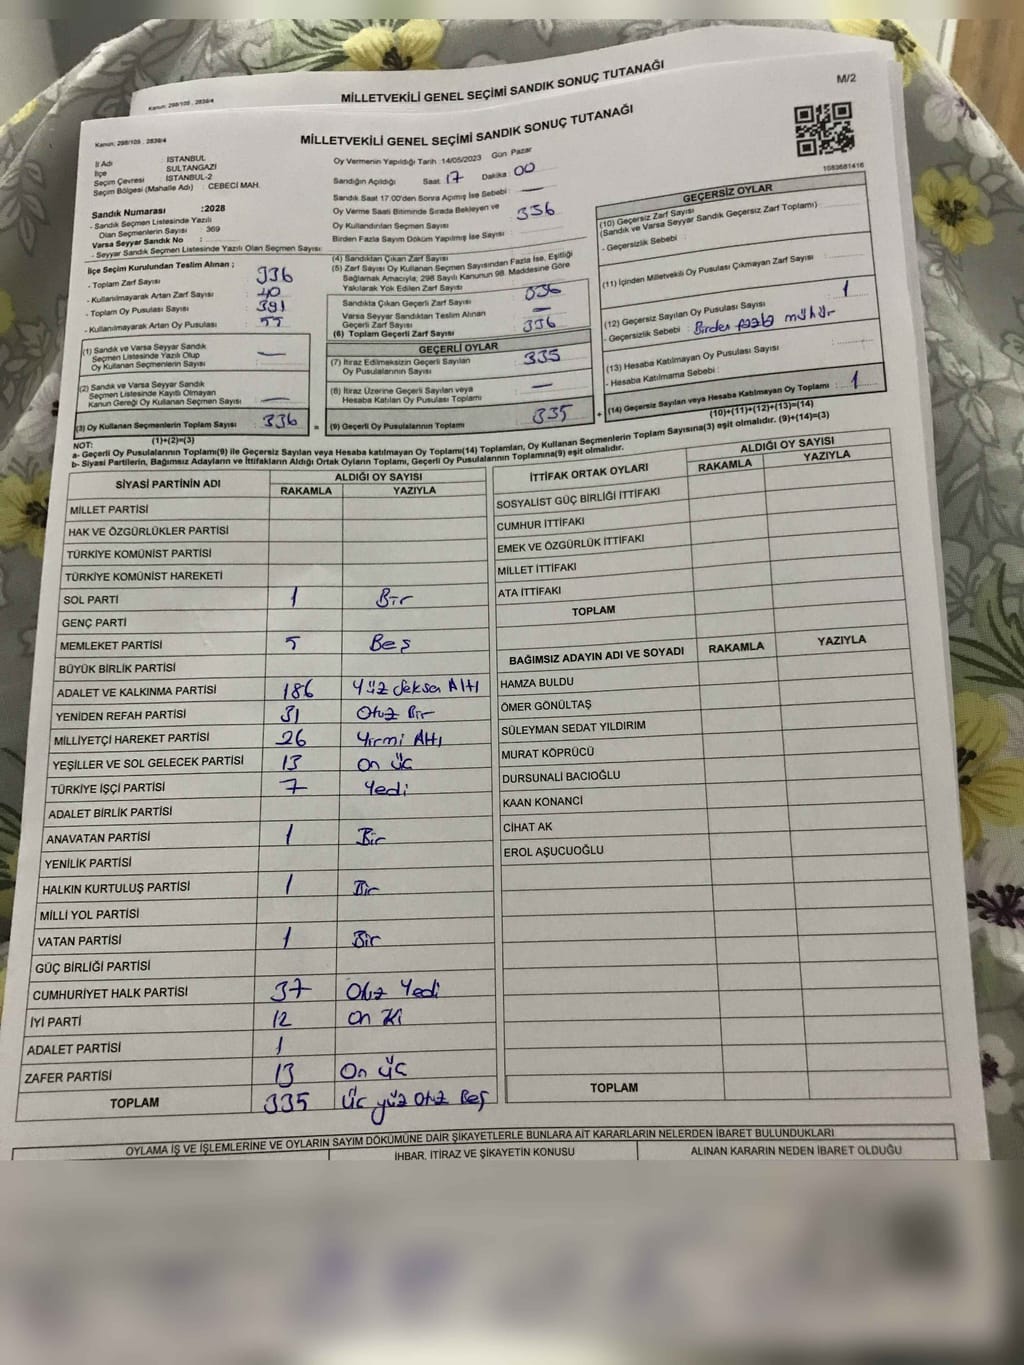 Kanun: 298/105 , 2839/4
MİLLETVEKİLİ GENEL SEÇİMİ SANDIK SONUÇ TUTANAĞI
M/2
Kanun: 298/105 , 2839/4
MİLLETVEKİLİ GENEL SEÇİMİ SANDIK SONUÇ TUTANAĞI
1083681416
İl Adı : İSTANBUL
İlçe SULTANGAZİ
Seçim Çevresi : İSTANBUL-2
Seçim Bölgesi (Mahalle Adı) : CEBECİ MAH.
Sandık Numarası :2028
- Sandık Seçmen Listesinde Yazılı
Olan Seçmenlerin Sayısı : 369
Varsa Seyyar Sandık No :
- Seyyar Sandık Seçmen Listesinde Yazılı Olan Seçmen Sayısı:
Oy Vermenin Yapıldığı Tarih :14/05/2023 Gün Pazar
Sandığın Açıldığı Saat 17 Dakika 00
Sandık Saat 17.00'den Sonra Açılmış İse Sebebi :
Oy Verme Saati Bitiminde Sırada Bekleyen ve
Oy Kullandırılan Seçmen Sayısı 336
Birden Fazla Sayım Döküm Yapılmış İse Sayısı :
İlçe Seçim Kurulundan Teslim Alınan ;
- Toplam Zarf Sayısı : 336
- Kullanılmayarak Artan Zarf Sayısı : 40
- Toplam Oy Pusulası Sayısı : 391
- Kullanılmayarak Artan Oy Pusulası : 55
(1) Sandık ve Varsa Seyyar Sandık
Seçmen Listesinde Yazılı Olup
Oy Kullanan Seçmen Sayısı : —
(2) Sandık ve Varsa Seyyar Sandık
Seçmen Listelerinde Kayıtlı Olmayan
Kanun Gereği Oy Kullanan Seçmen Sayısı : —
(3) Oy Kullanan Seçmenlerin Toplam Sayısı : 336
(1)+(2)=(3)
(4) Sandıktan Çıkan Zarf Sayısı
(5) Zarf Sayısı Oy Kullanan Seçmen Sayısından Fazla İse, Eşitliği
Sağlamak Amacıyla; 298 Sayılı Kanunun 98. Maddesine Göre
Yakılarak Yok Edilen Zarf Sayısı :
Sandıkta Çıkan Geçerli Zarf Sayısı 336
Varsa Seyyar Sandıktan Teslim Alınan
Geçerli Zarf Sayısı : —
(6) Toplam Geçerli Zarf Sayısı : 336
GEÇERLİ OYLAR
(7) İtiraz Edilmeksizin Geçerli Sayılan
Oy Pusulasının Sayısı : 335
(8) İtiraz Üzerine Geçerli Sayılan veya
Hesaba Katılan Oy Pusulası Toplamı : —
= (9) Geçerli Oy Pusulalarının Toplamı : 335
GEÇERSİZ OYLAR
(10) Geçersiz Zarf Sayısı
(Sandık ve Varsa Seyyar Sandık Geçersiz Zarf Toplamı) :
- Geçersizlik Sebebi :
(11) İçinden Milletvekili Oy Pusulası Çıkmayan Zarf Sayısı :
(12) Geçersiz Sayılan Oy Pusulası Sayısı : 1
- Geçersizlik Sebebi : Birden fazla mühür
(13) Hesaba Katılmayan Oy Pusulası Sayısı :
- Hesaba Katılmama Sebebi :
+ (14) Geçersiz Sayılan veya Hesaba Katılmayan Oy Toplamı : 1
(10)+(11)+(12)+(13)=(14)
NOT:
a- Geçerli Oy Pusulalarının Toplamı(9) ile Geçersiz Sayılan veya Hesaba katılmayan Oy Toplamı(14) Toplamları, Oy Kullanan Seçmenlerin Toplam Sayısına(3) eşit olmalıdır. (9)+(14)=(3)
b- Siyasi Partilerin, Bağımsız Adayların ve İttifakların Aldığı Ortak Oyların Toplamı, Geçerli Oy Pusulalarının Toplamına(9) eşit olmalıdır.
SİYASİ PARTİNİN ADI
ALDIĞI OY SAYISI
RAKAMLA YAZIYLA
MİLLET PARTİSİ
HAK VE ÖZGÜRLÜKLER PARTİSİ
TÜRKİYE KOMÜNİST PARTİSİ
TÜRKİYE KOMÜNİST HAREKETİ
SOL PARTİ 1 Bir
GENÇ PARTİ
MEMLEKET PARTİSİ 5 Beş
BÜYÜK BİRLİK PARTİSİ
ADALET VE KALKINMA PARTİSİ 186 Yüz Seksen Altı
YENİDEN REFAH PARTİSİ 31 Otuz Bir
MİLLİYETÇİ HAREKET PARTİSİ 26 Yirmi Altı
YEŞİLLER VE SOL GELECEK PARTİSİ 13 On üç
TÜRKİYE İŞÇİ PARTİSİ 7 Yedi
ADALET BİRLİK PARTİSİ
ANAVATAN PARTİSİ 1 Bir
YENİLİK PARTİSİ
HALKIN KURTULUŞ PARTİSİ 1 Bir
MİLLİ YOL PARTİSİ
VATAN PARTİSİ 1 Bir
GÜÇ BİRLİĞİ PARTİSİ
CUMHURİYET HALK PARTİSİ 37 Otuz Yedi
İYİ PARTİ 12 On İki
ADALET PARTİSİ 1
ZAFER PARTİSİ 13 On üç
TOPLAM 335 Üç yüz Otuz Beş
İTTİFAK ORTAK OYLARI
ALDIĞI OY SAYISI
RAKAMLA YAZIYLA
SOSYALİST GÜÇ BİRLİĞİ İTTİFAKI
CUMHUR İTTİFAKI
EMEK VE ÖZGÜRLÜK İTTİFAKI
MİLLET İTTİFAKI
ATA İTTİFAKI
TOPLAM
BAĞIMSIZ ADAYIN ADI VE SOYADI RAKAMLA YAZIYLA
HAMZA BULDU
ÖMER GÖNÜLTAŞ
SÜLEYMAN SEDAT YILDIRIM
MURAT KÖPRÜCÜ
DURSUNALİ BACIOĞLU
KAAN KONANCİ
CİHAT AK
EROL AŞUCUOĞLU
TOPLAM
OYLAMA İŞ VE İŞLEMLERİNE VE OYLARIN SAYIM DÖKÜMÜNE DAİR ŞİKAYETLERLE BUNLARA AİT KARARLARIN NELERDEN İBARET BULUNDUKLARI
İHBAR, İTİRAZ VE ŞİKAYETİN KONUSU
ALINAN KARARIN NEDEN İBARET OLDUĞU